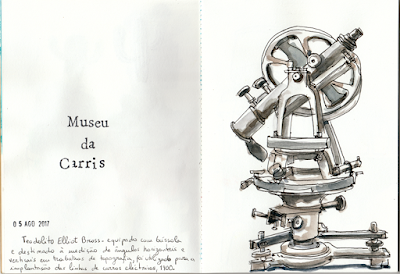 Museu
da
Carris
05 AGO 2017
Teodolito Elliot Bross - equipado com bússola
e destinado à medição de ângulos horizontais e
verticais em trabalhos de topografia, foi utilizado para a
implantação das linhas de carros eléctricos, 1900.